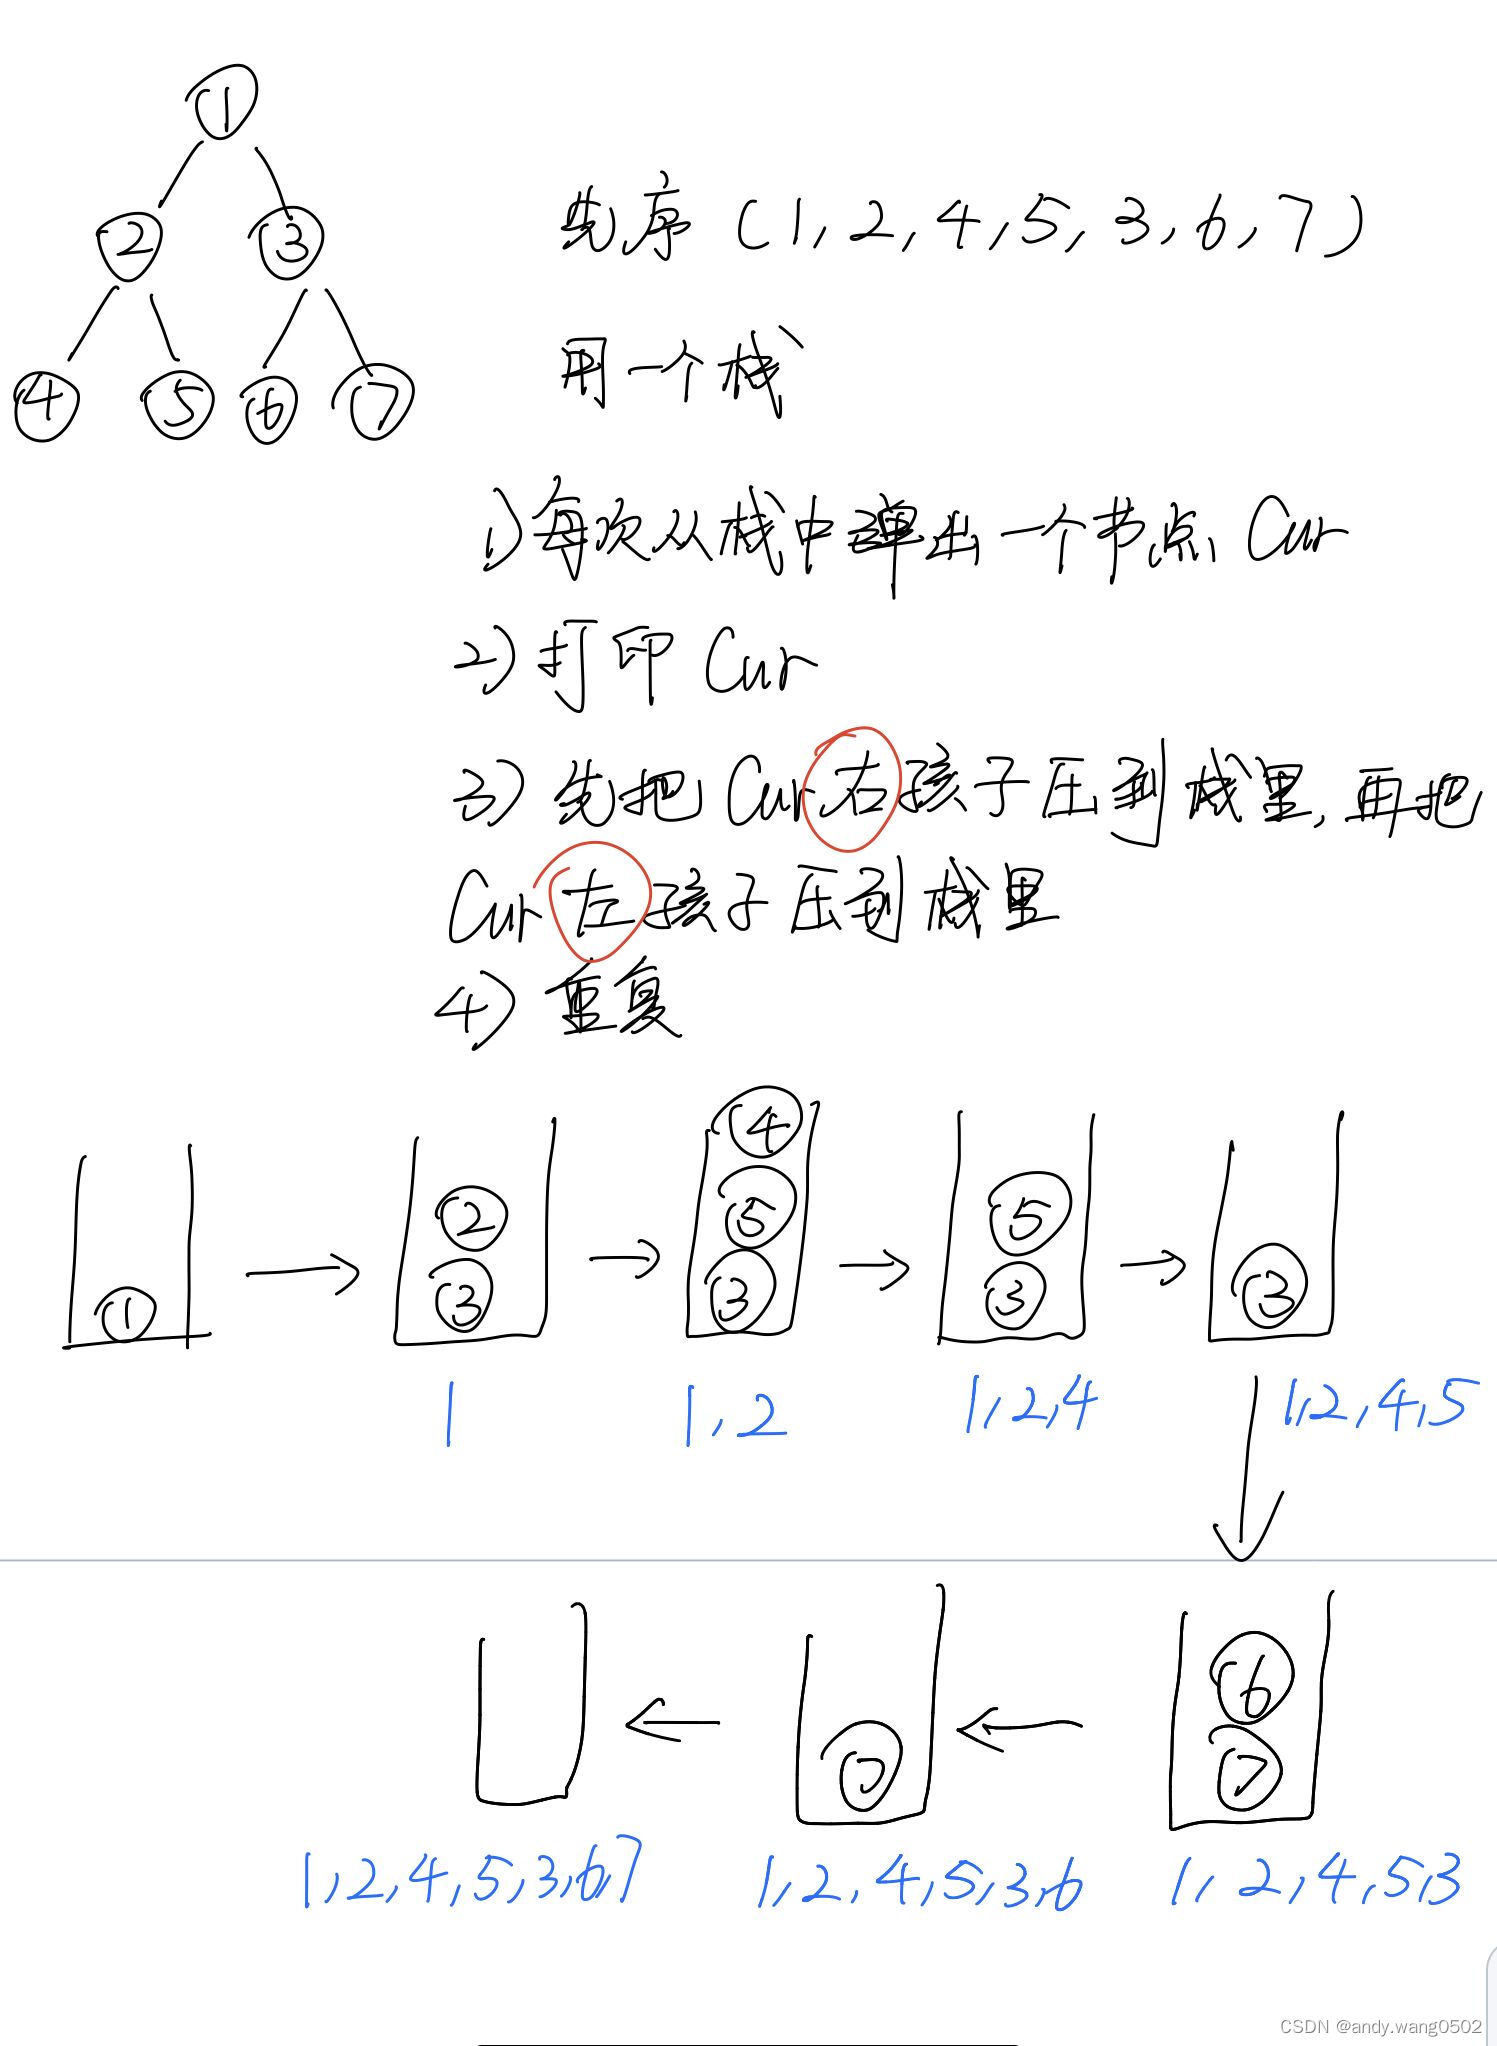 1
2 3
4 5 6 7
先序 (1, 2, 4, 5, 3, 6, 7)
用一个栈
1) 每次从栈中弹出一个节点 Cur
2) 打印 Cur
3) 先把 Cur 右孩子压到栈里, 再把
Cur 左孩子压到栈里
4) 重复
1
2
3
4
5
3
5
3
3
1
1, 2
1, 2, 4
1, 2, 4, 5
6
7
7
1, 2, 4, 5, 3, 6, 7
1, 2, 4, 5, 3, 6
1, 2, 4, 5, 3
CSDN @andy.wang0502